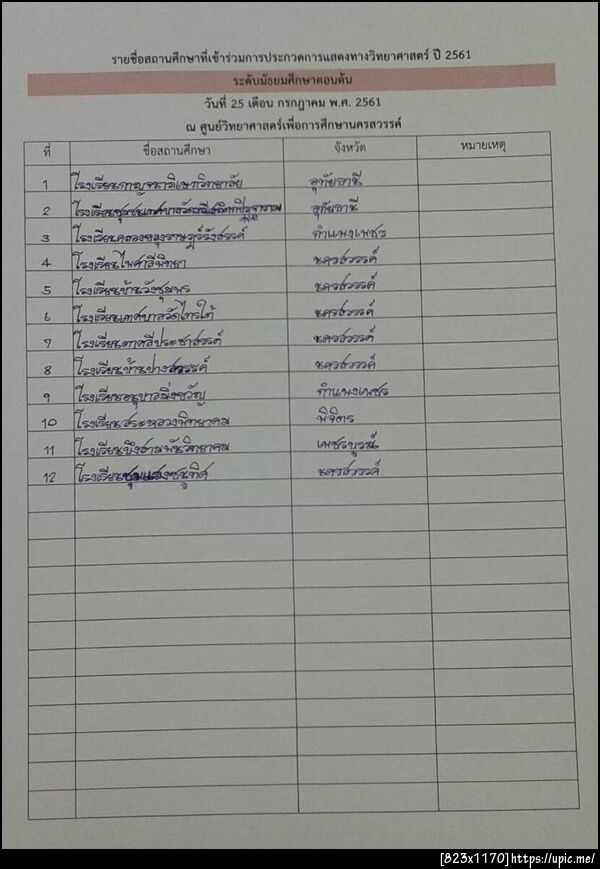 รายชื่อสถานศึกษาที่เข้าร่วมการประกวดการแสดงทางวิทยาศาสตร์ ปี 2561
ระดับมัธยมศึกษาตอนต้น
วันที่ 25 เดือน กรกฎาคม พ.ศ. 2561
ณ ศูนย์วิทยาศาสตร์เพื่อการศึกษานครสวรรค์
ที่ ชื่อสถานศึกษา จังหวัด หมายเหตุ
1 โรงเรียนกาญจนาภิเษกวิทยาลัย อุทัยธานี
2 อุทัยธานี
3 โรงเรียนคลองลานราษฎร์รังสรรค์ กำแพงเพชร
4 โรงเรียนไพศาลีพิทยา นครสวรรค์
5 โรงเรียนบ้านวังชุมพร นครสวรรค์
6 โรงเรียนเทศบาลวัดไทรใต้ นครสวรรค์
7 โรงเรียนตาคลีประชาสรรค์ นครสวรรค์
8 โรงเรียนบ้านปางสวรรค์ นครสวรรค์
9 โรงเรียนอนุบาลมิ่งขวัญ กำแพงเพชร
10 โรงเรียนสระหลวงพิทยาคม พิจิตร
11 โรงเรียนบึงสามพันวิทยาคม เพชรบูรณ์
12 โรงเรียนชุมแสงชนูทิศ นครสวรรค์
[823x1170]https://upic.me/